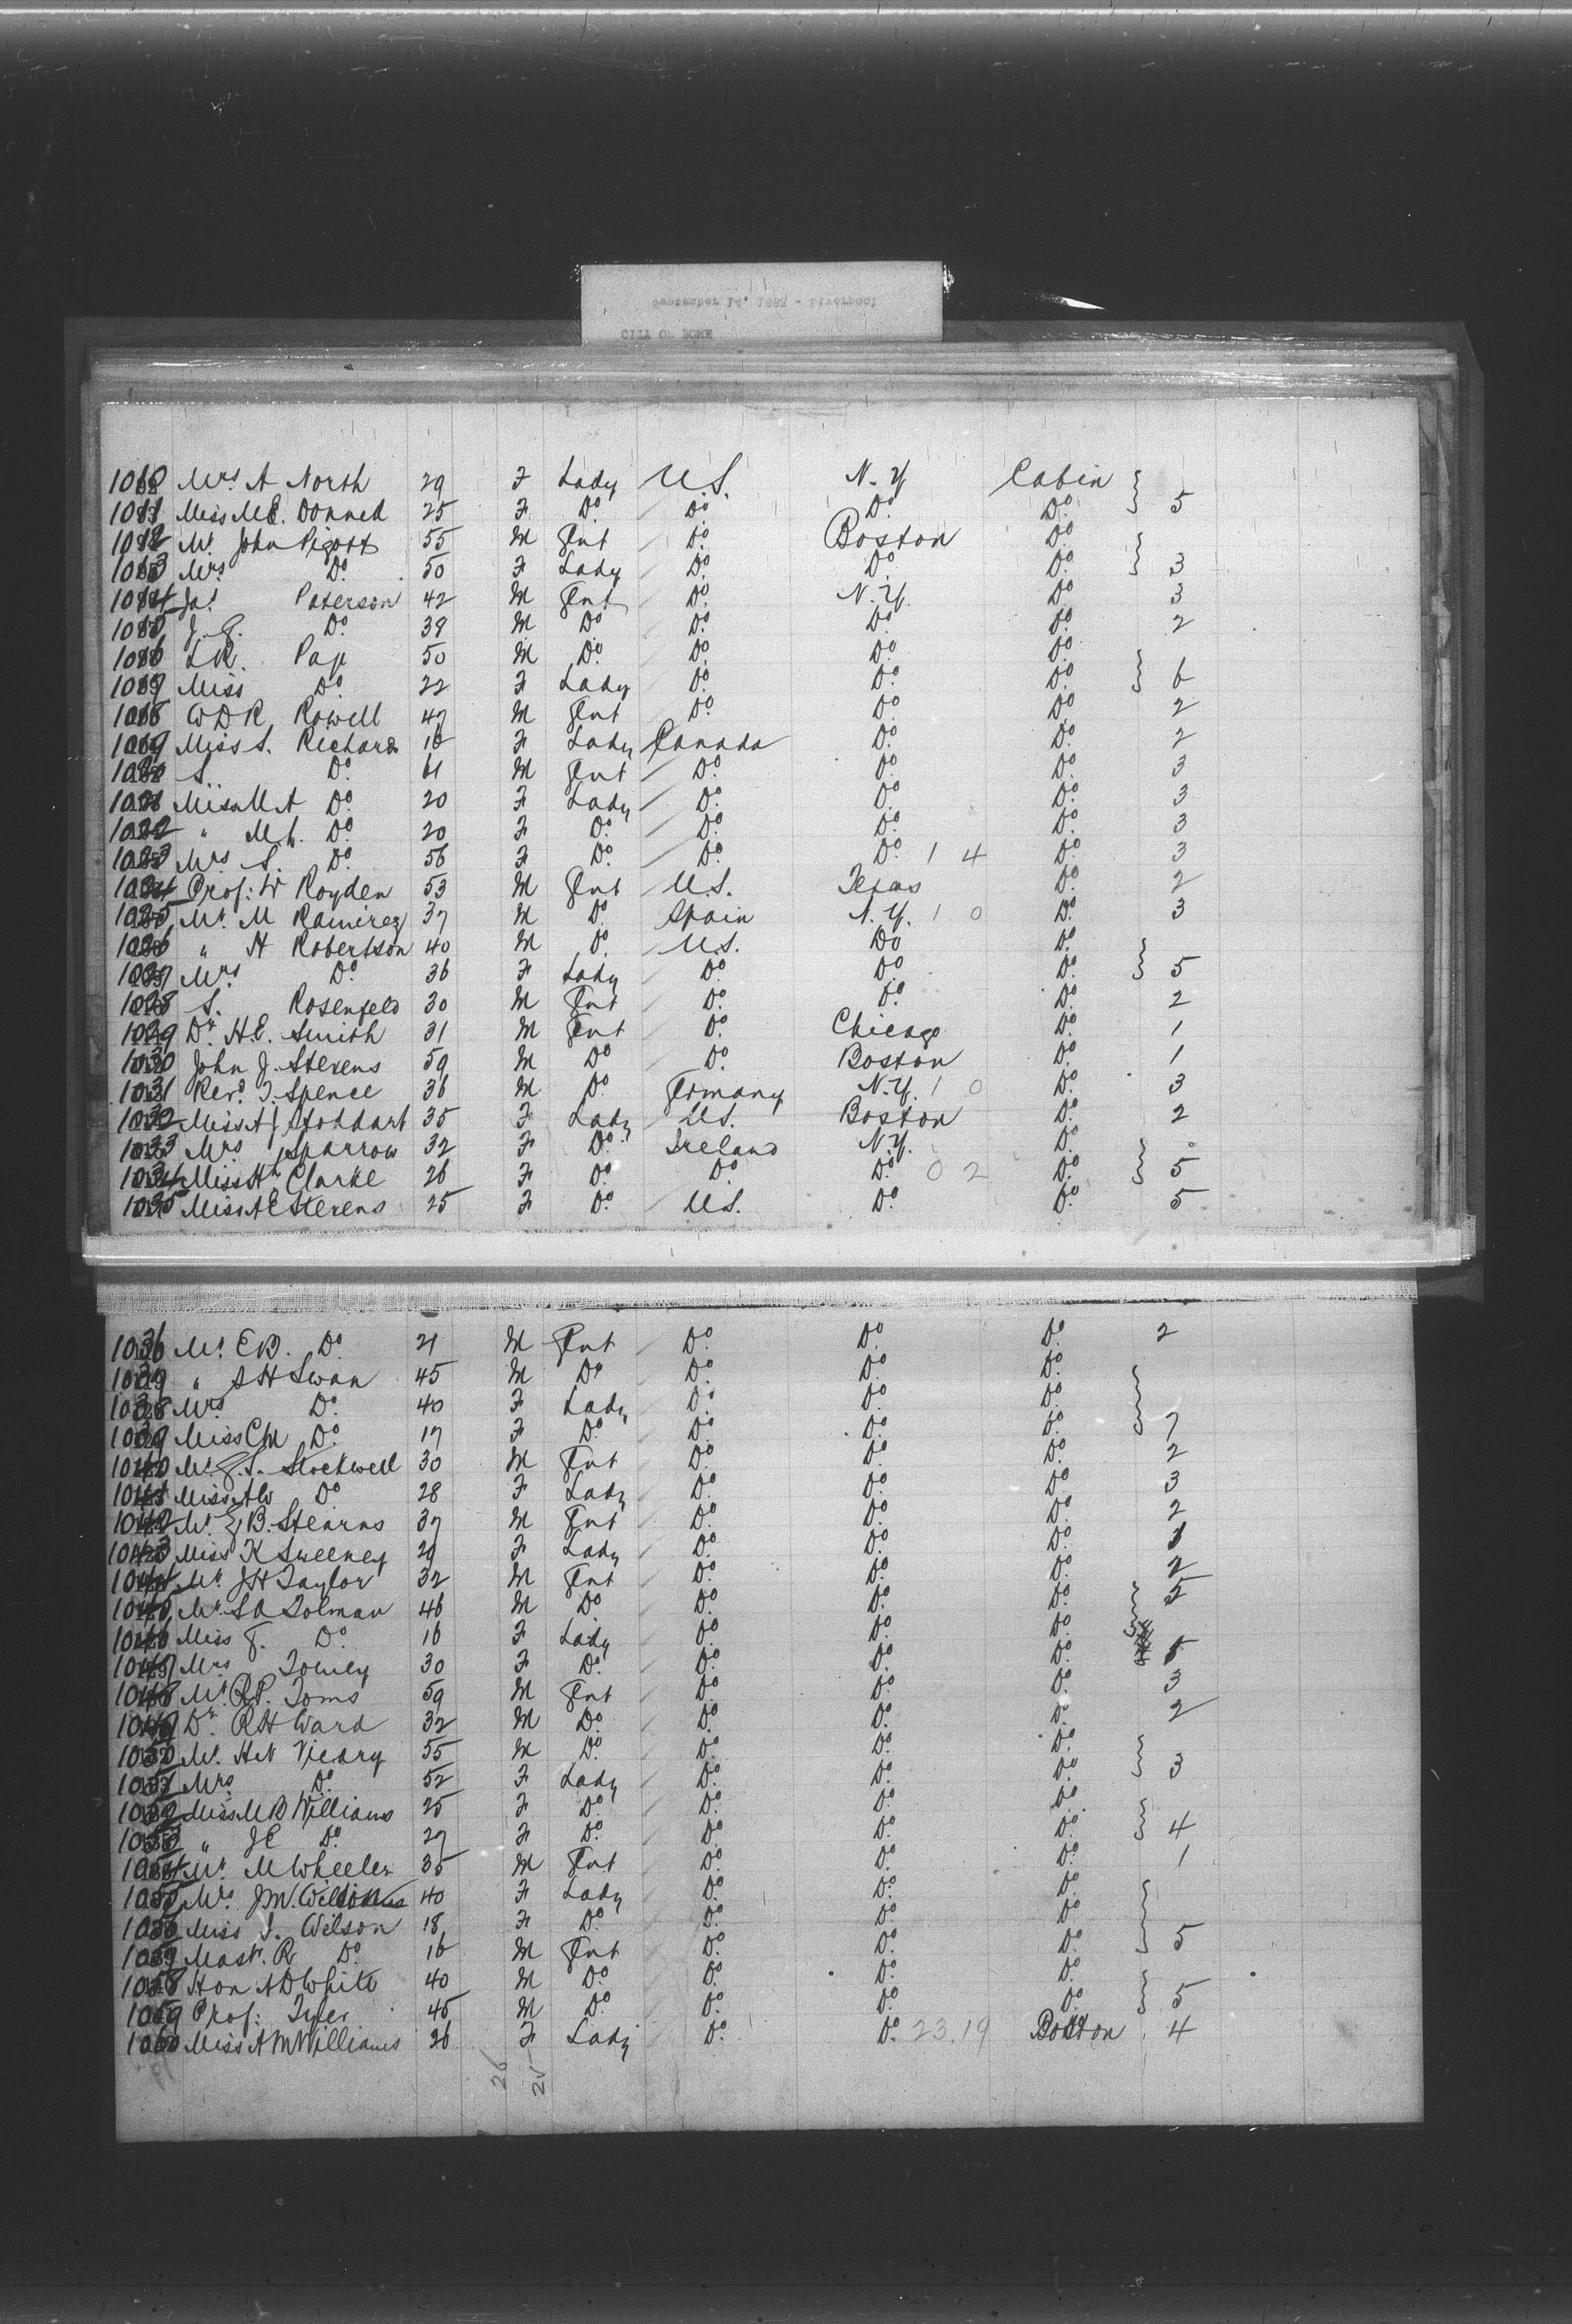 September 14, 1887 - Liverpool
CITY OF ROME
1010 Mrs A North 29 F Lady U.S. N.Y. Cabin
1011 Miss M E. Donned 25 F Do Do Do Do 5
1012 Mr John Pigott 55 M Gent Do Boston Do
1013 Mrs Do 50 F Lady Do Do Do 3
1014 Jas Paterson 42 M Gent Do N.Y. Do 3
J. G. Do 39 M Do Do Do Do 2
1016 L R. Page 50 M Do Do Do Do
1017 Miss Do 22 F Lady Do Do Do 6
1018 W D R Rowell 47 M Gent Do Do Do 2
1019 Miss S. Richards 18 F Lady Canada Do Do 2
S. Do 61 M Gent Do Do Do 3
1021 Miss M A Do 20 F Lady Do Do Do 3
1022 " M L. Do 20 F Do Do Do Do 3
1023 Mrs S. Do 56 F Do Do Do 1 4 Do 3
1024 Prof: W Royden 53 M Gent U.S. Texas Do 2
1025 Mr M Ramirez 37 M Do Spain N.Y. 1 0 Do 3
1026 " H Robertson 40 M Do U.S. Do Do
1027 Mrs Do 36 F Lady Do Do Do 5
1028 S. Rosenfeld 30 M Gent Do Do Do 2
1029 Dr. H.E. Smith 31 M Gent Do Chicago Do 1
1030 John J. Stevens 59 M Do Do Boston Do 1
1031 Revd. J. Spence 36 M Do Germany N.Y. 1 0 Do 3
1032 Miss A J Stoddart 35 F Lady U.S. Boston Do 2
1033 Mrs Sparrow 32 F Do Ireland N.Y. Do
1034 Miss H Clarke 26 F Do Do Do 0 2 Do 5
1035 Miss A E Stevens 25 F Do U.S. Do Do 5
1036 Mr. E B. Do 21 M Gent Do Do Do 2
" S H Swan 45 M Do Do Do Do
1038 Mrs Do 40 F Lady Do Do Do
1039 Miss C M Do 17 F Do Do Do Do 7
1040 Mr. G. S. Stockwell 30 M Gent Do Do Do 2
1041 Miss A W Do 28 F Lady Do Do Do 3
1042 Mr. E B. Stearns 37 M Gent Do Do Do 2
1043 Miss K Sweeney 29 F Lady Do Do Do
1044 Mr. J H Taylor 32 M Gent Do Do Do 2
1045 Mr. S A Tolman 46 M Do Do Do Do 5
1046 Miss G. Do 16 F Lady Do Do Do
1047 Mrs Towey 30 F Do Do Do Do
1048 Mr. R P. Toms 59 M Gent Do Do Do 3
1049 Dr. R H Ward 32 M Do Do Do Do 2
1050 Mr. H N Vicary 55 M Do Do Do Do
1051 Mrs Do 52 F Lady Do Do Do 3
1052 Miss M B Williams 25 F Do Do Do Do
1053 " J E Do 27 F Do Do Do Do 4
1054 Mr. M Wheeler 35 M Gent Do Do Do 1
1055 Mrs. J M. 40 F Lady Do Do Do
1056 Miss J. Wilson 18 F Do Do Do Do
1057 Mastr. R Do 16 M Gent Do Do Do 5
1058 Hon A D White 40 M Do Do Do Do
1059 Prof: Tyler 45 M Do Do Do Do 5
1060 Miss A M Williams 26 F Lady Do Do 23.19 Boston 4
26 25